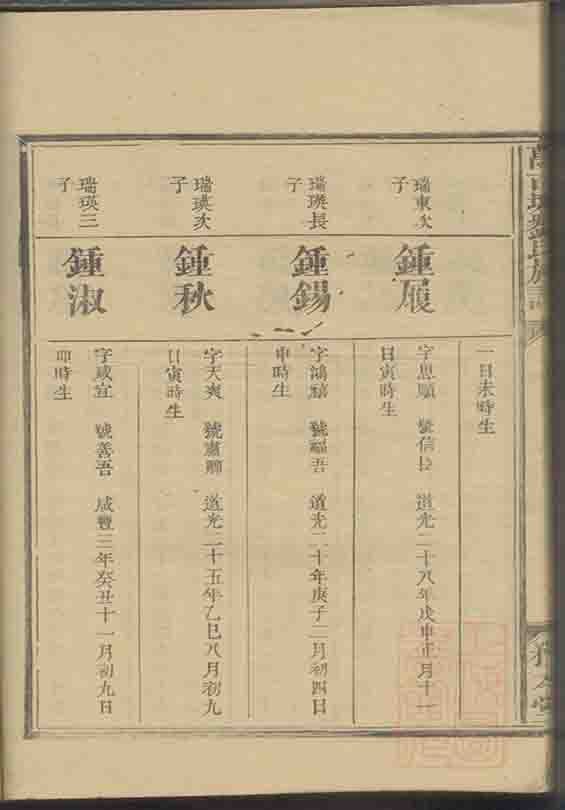 一日未時生
瑞東次
子
鍾履
字思順 號信臣 道光二十八年戊申正月十一
日寅時生
瑞瑛長
子
鍾錫
字鴻禧 號福吾 道光二十年庚子二月初四日
申時生
瑞瑛次
子
鍾秋
字天爽 號肅卿 道光二十五年乙巳八月初九
日寅時生
瑞瑛三
子
鍾淑
字咸宜 號善吾 咸豐三年癸丑十一月初九日
卯時生